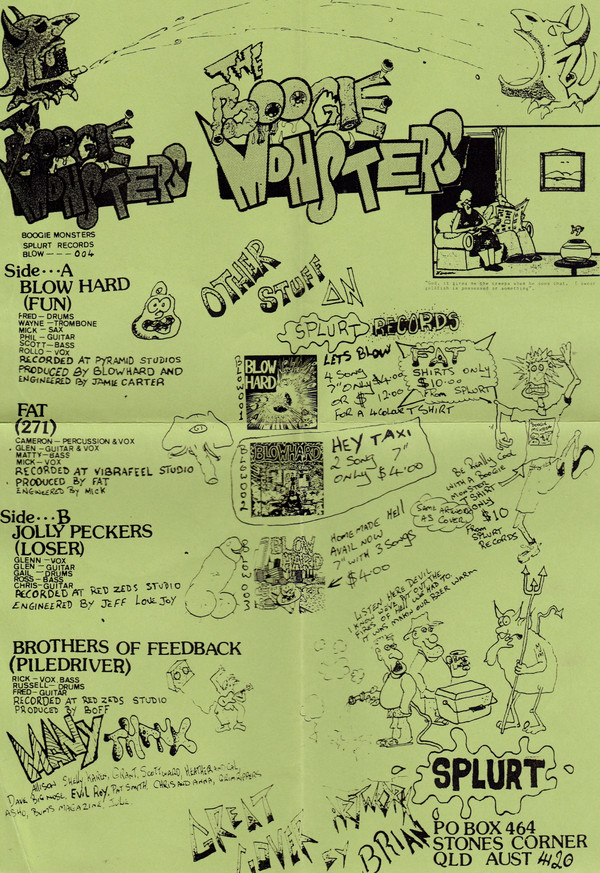 THE
BOOGIE
MONSTERS
THE
BOOGIE
MONSTERS
BOOGIE MONSTERS
SPLURT RECORDS
BLOW---004
Side...A
BLOW HARD
(FUN)
FRED-DRUMS
WAYNE-TROMBONE
MICK-SAX
PHIL-GUITAR
SCOTT-BASS
ROLLO-VOX
RECORDED AT PYRAMID STUDIOS
PRODUCED BY BLOWHARD AND
ENGINEERED BY JAMIE CARTER
FAT
(271)
CAMERON-PERCUSSION & VOX
GLEN-GUITAR & VOX
MATTY-BASS
MICK-VOX
RECORDED AT VIBRAFEEL STUDIO
PRODUCED BY FAT
ENGINEERED BY MICK
Side...B
JOLLY PECKERS
(LOSER)
GLENN-VOX
GLEN-GUITAR
GAIL-DRUMS
ROSS-BASS
CHRIS-GUITAR
RECORDED AT RED ZEDS STUDIO
ENGINEERED BY JEFF LOVEJOY
BROTHERS OF FEEDBACK
(PILEDRIVER)
RICK-VOX BASS
RUSSELL-DRUMS
FRED-GUITAR
RECORDED AT RED ZEDS STUDIO
PRODUCED BY BOFF
MANY THANX
ALLISON SHELLY KAREN, GRANT, SCOTT WARD, HEATHER AND
DAVE BIG NOSE, EVIL ROY, PAT SMITH CHRIS AND ANNA,
ASHO, BUMS MAGAZINE,
OTHER
STUFF
ON
SPLURT RECORDS
BLOW 001
BLOW
HARD
LETS BLOW
4 SONG
7" ONLY $4:00
OR $ 12:00
FOR A 4 COLOR T SHIRT
FAT
SHIRTS ONLY
$10:00
FROM SPLURT
BLOW 002
BLOWHARD
HEY TAXI
2 SONG 7"
ONLY $4:00
BLOW 003
BLOWHARD
HOMEMADE HELL
AVAIL NOW
7" WITH 3 SONGS
$4:00
BE REALLY COOL
WITH A BOOGIE
MONSTER
T SHIRT
ONLY
$10
FROM
SPLURT
RECORDS
SAME ARTWORK
AS COVER
LISTEN HERE DEVIL
I KNOW WE'VE PUT OUT THE
FIRES OF HELL WE HAD TO
IT WAS MAKEN OUR BEER WARM
SPLURT
GREAT
COVER
ARTWORK
BY BRIAN
PO BOX 464
STONES CORNER
QLD AUST 4120